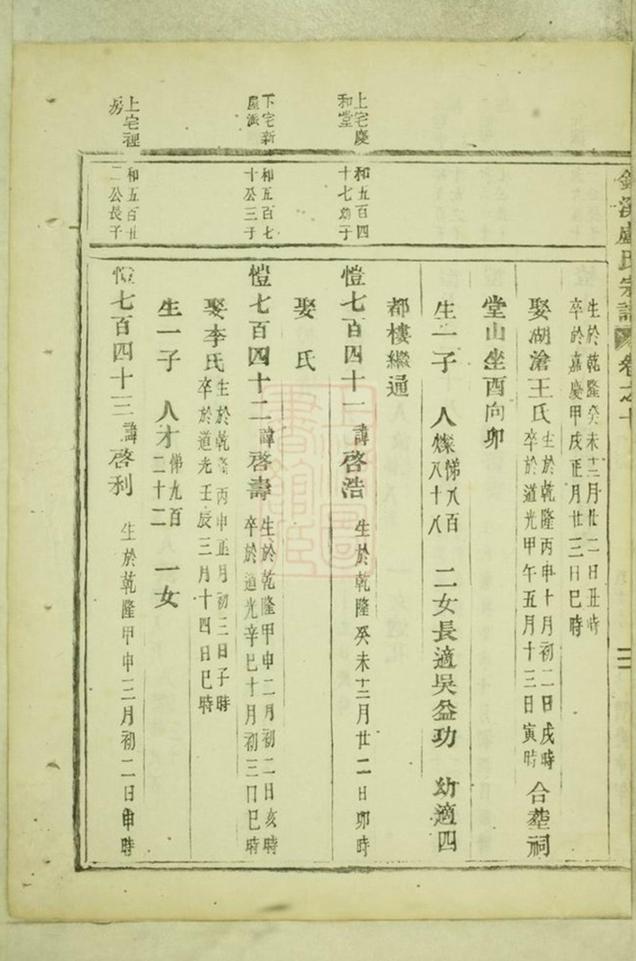 盧氏宗譜 卷之十
生於乾隆癸未十二月廿二日丑時
卒於嘉慶甲戌正月廿三日巳時
娶湖滄王氏 生於乾隆丙申十月初二日戌時 卒於道光甲午五月十三日寅時 合塟祠
堂山坐酉向卯
生一子 人燦 悌八百八十八 二女長適吳益功 幼適四
都樓繼通
上宅慶和堂
和五百四十七幼子
愷七百四十一 諱啓浩 生於乾隆癸未十二月廿二日卯時
娶 氏
下宅新屋派
和五百七十公三子
愷七百四十二 諱啓壽 生於乾隆甲申二月初二日亥時 卒於道光辛巳十月初三日巳時
娶李氏 生於乾隆丙申正月初三日子時 卒於道光壬辰三月十四日巳時
生一子 人才 悌九百二十二 一女
上宅裡房
和五百廿二公長子
愷七百四十三 諱啓利 生於乾隆甲申三月初二日申時